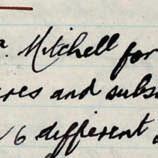 Mitchell for
and subs
6 different